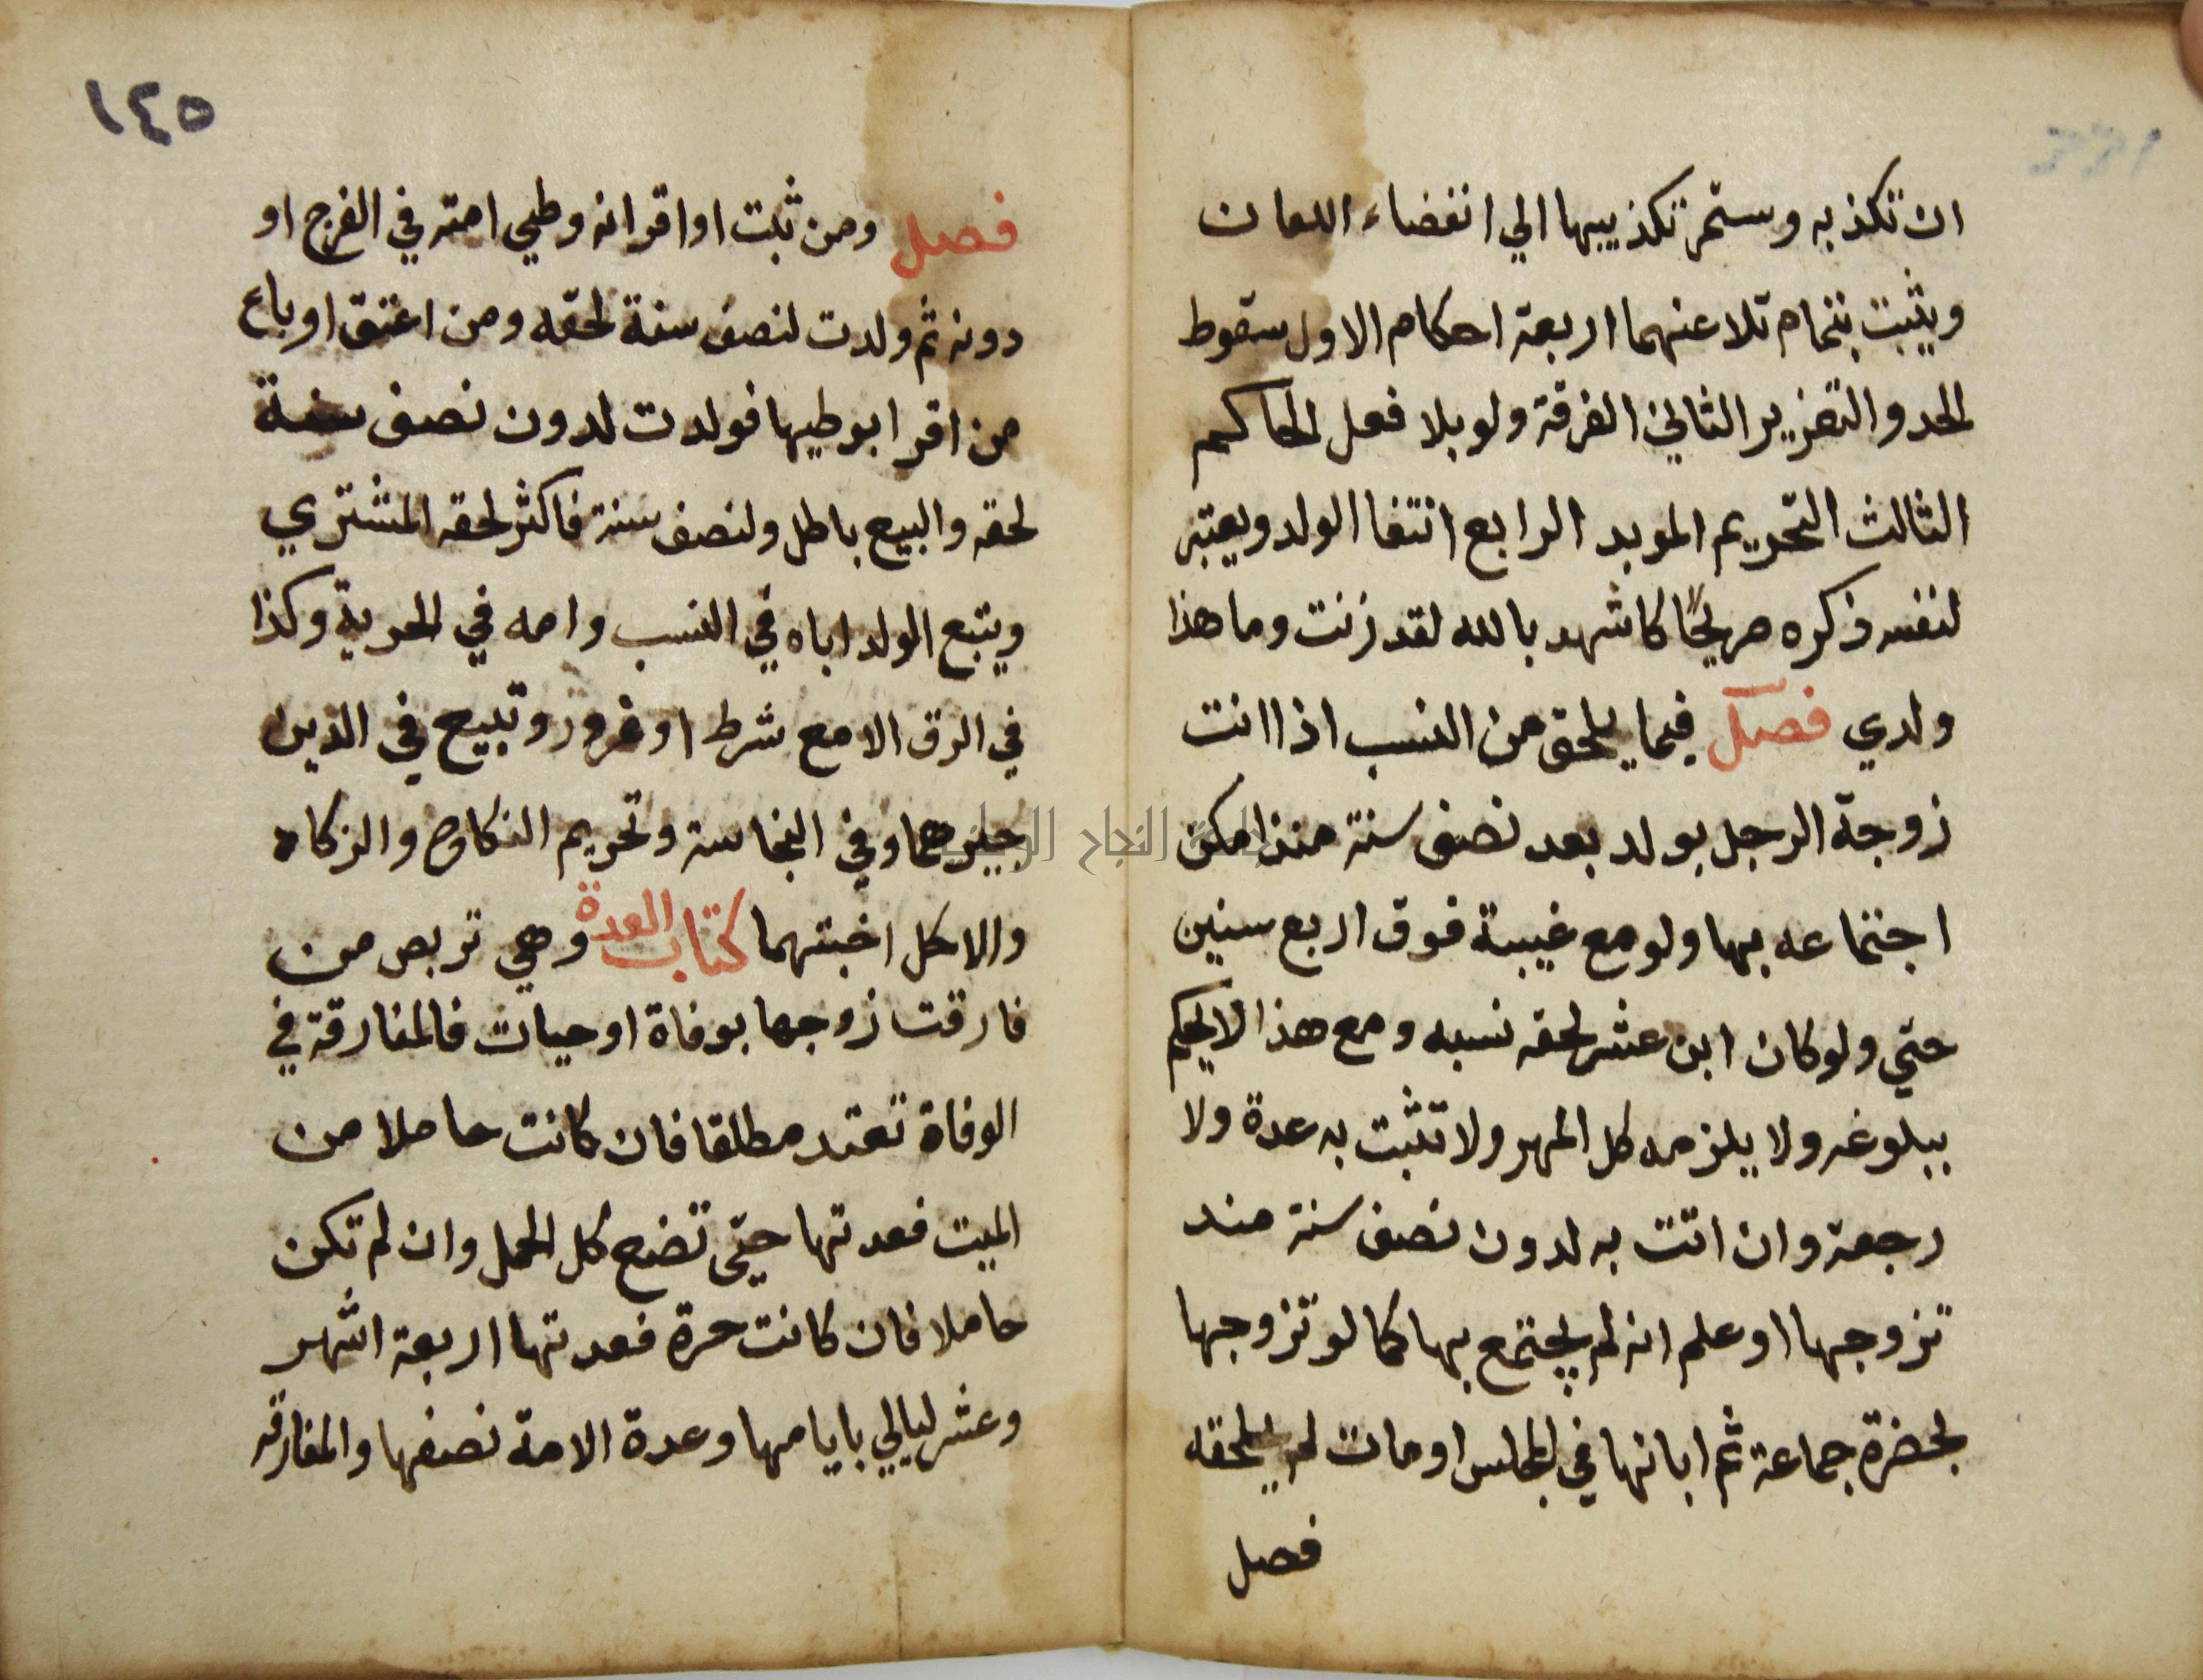 ان تكذبه وستمر تكذيبها الي انقضاء اللعان
ويثبت بتمام تلاعنهما اربعة احكام الاول سقوط
الحد والتعزير الثاني الفرقة ولو بلا فعل الحاكم
الثالث التحريم الموبد الرابع انتفا الولد ويعتبر
لنفيه ذكره صريحًا كاشهد بالله لقد زنت وما هذا
ولدي فصل فيما يلحق من النسب اذا اتت
زوجة الرجل بولد بعد نصف سنة منذ امكن
اجتماعه بها ولو مع غيبة فوق اربع سنين
حتي ولو كان ابن عشر لحقه نسبه ومع هذا لا يحكم
ببلوغه ولا يلزمه كل المهر ولا تثبت به عدة ولا
رجعة وان اتت به لدون نصف سنة منذ
تزوجها او علم انه لم يجتمع بها كما لو تزوجها
بحضرة جماعة ثم ابانها في المجلس او مات لم يلحقه
فصل
١٤٥
فصل ومن ثبت او اقر انه وطي امته في الفرج او
دونه ثم ولدت لنصف سنة لحقه ومن اعتق او باع
من اقر ابوطيها فولدت لدون نصف سنة
لحقه والبيع باطل ولنصف سنة فاكثر لحقه المشتري
ويتبع الولد اباه في النسب وامه في الحرية وكذا
في الرق الا مع شرط او غرور وتبيح في الدين
خيرهما وفي النجاسة وتحريم النكاح والزكاه
والاكل اخبثهما كتاب العدة وهي تربص من
فارقت زوجها بوفاة او حيات فالمفارقة في
الوفاة تعتد مطلقا فان كانت حاملا من
الميت فعدتها حتى تضع كل الحمل وان لم تكن
حاملا فان كانت حرة فعدتها اربعة اشهر
وعشر ليالي بايامها وعدة الامة نصفها والمفارقه
جامعة النجاح الوطنية